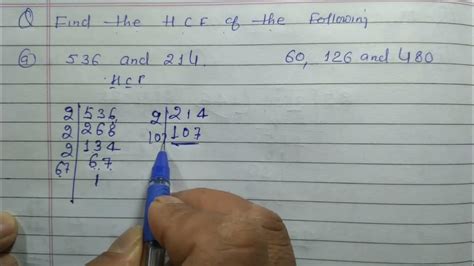 Q Find the HCF of the Following
a) 536 and 214 60, 126 and 480
HCF
2 536 2 214
2 268 107 107
2 134
67 67
1